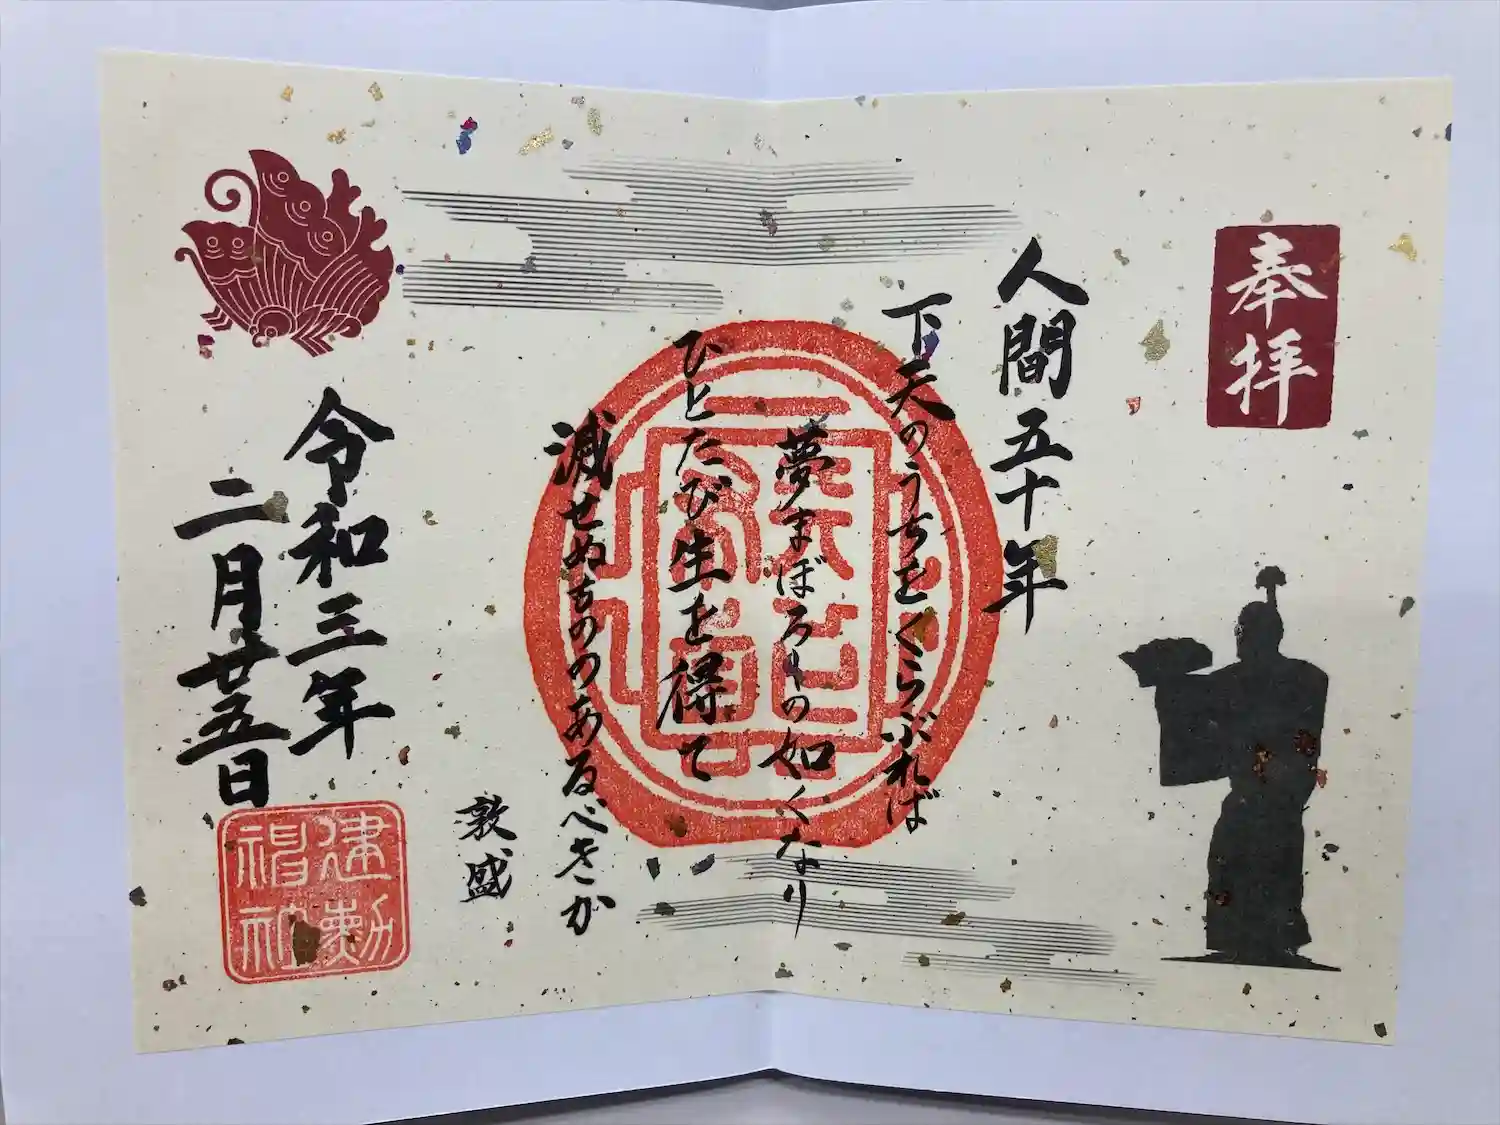 奉拝
人間五十年
下天のうちをくらぶれば
夢まぼろしの如くなり
ひとたび生を得て
滅せぬもののあるべきか
敦盛
令和三年
二月廿五日
建勲
神社
天下布武